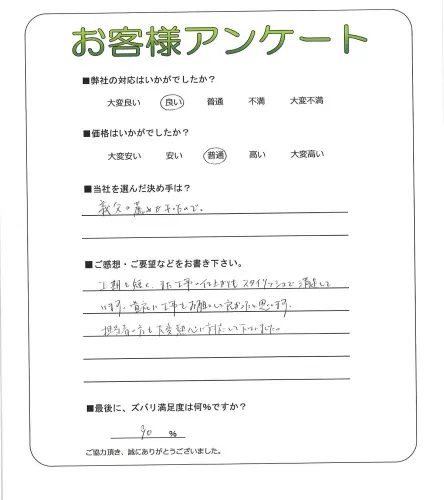 お客様アンケート
■弊社の対応はいかがでしたか?
大変良い 良い 普通 不満 大変不満
■価格はいかがでしたか?
大変安い 安い 普通 高い 大変高い
■当社を選んだ決め手は?
義父の薦めがあったので。
■ご感想・ご要望などをお書き下さい。
工期も短く、また工事の仕上がりもスタイリッシュで満足して
います。貴社に工事をお願いして良かったと思います。
担当者の方も大変熱心に対応して下さいました。
■最後に、ズバリ満足度は何%ですか?
90 %
ご協力頂き、誠にありがとうございました。